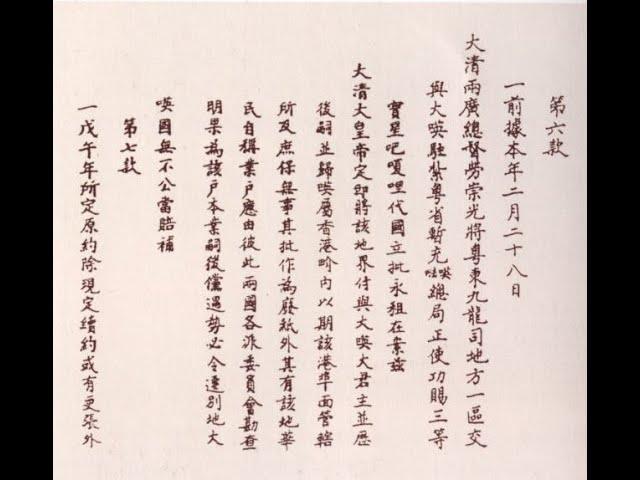 第六款
一前據本年二月二十八日
大清兩廣總督勞崇光將粵東九龍司地方一區交
與大𠸄駐紮粵省暫充𠸄𠵽總局正使功賜三等
寶星吧嗄哩代國立批永租在案茲
大清大皇帝定即將該地界付與大𠸄大君主並歷
後嗣並歸𠸄屬香港畍內以期該港埠面管轄
所及庶保無事其批作為廢紙外其有該地華
民自稱業戶應由彼此兩國各派委員會勘查
明果為該戶本業嗣後儻遇勢必令遷別地大
𠸄國無不公當賠補
第七款
一戊午年所定原約除現定續約或有更張外